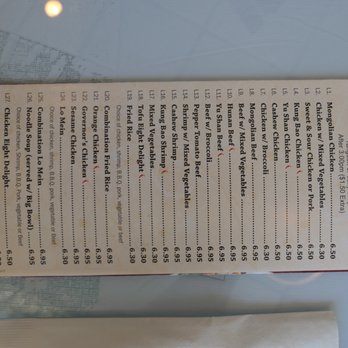 After 3:00pm ($1.50 Extra)
L1. Mongolian Chicken ........ 6.50
L2. Chicken w/ Mixed Vegetables ........ 6.30
L3. Sweet & Sour Chicken or Pork ........ 6.50
L4. Kung Bao Chicken ........ 6.50
L5. Yu Shan Chicken ........ 6.50
L6. Cashew Chicken ........ 6.50
L7. Chicken w/ Broccoli ........ 6.30
L8. Mongolian Beef ........ 6.95
L9. Beef w/ Mixed Vegetables ........ 6.95
L10. Hunan Beef ........ 6.95
L11. Yu Shan Beef ........ 6.95
L12. Beef w/ Broccoli ........ 6.95
L13. Pepper Tomato Beef ........ 6.95
L14. Shrimp w/ Mixed Vegetables ........ 6.95
L15. Cashew Shrimp ........ 6.95
L16. Kung Bao Shrimp ........ 6.95
L17. Mixed Vegetables ........ 6.30
L18. Tofu Eight Delight ........ 6.30
L19. Fried Rice ........ 6.30
Choice of chicken, shrimp, B.B.Q. pork, vegetable or beef
L20. Combination Fried Rice ........ 6.95
L21. Orange Chicken ........ 6.95
L22. Governor's Chicken ........ 6.95
L23. Sesame Chicken ........ 6.95
L24. Lo Mein ........ 6.30
Choice of chicken, shrimp, B.B.Q. pork, vegetable or beef
L25. Combination Lo Mein ........ 6.95
L26. Noodle Soup (Served w/ Big Bowl) ........ 6.95
Choice of chicken, shrimp, B.B.Q. pork, vegetable or beef
L27. Chicken Eight Delight ........ 6.50